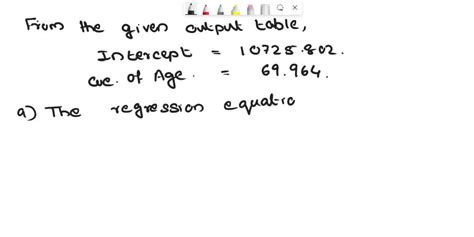 From the given output table,
Intercept = 10725.802.
coe. of Age. = 69.964.
a) The regression equatio